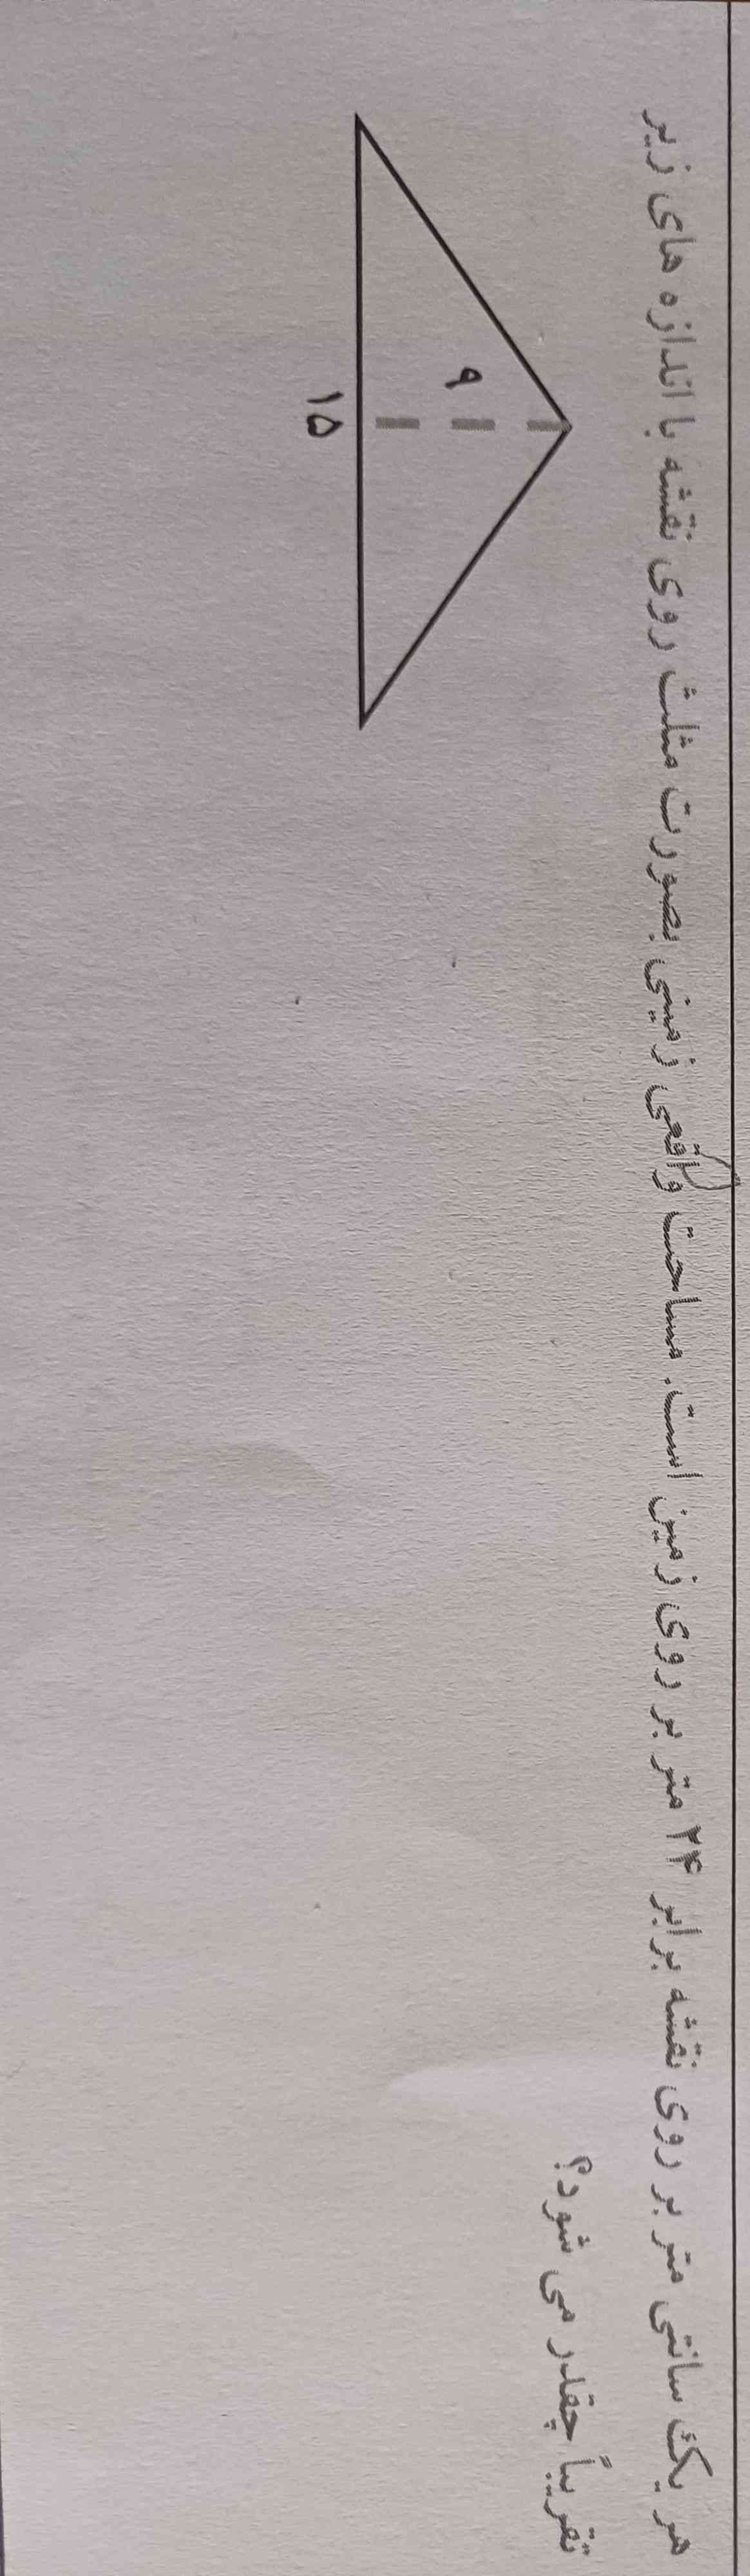 هر یک سانتی متر بر روی نقشه برابر ۲۴ متر بر روی زمین است. مساحت واقعی زمینی بصورت مثلث روی نقشه با اندازه های زیر
تقریباً چقدر می شود؟
۹
۱۵